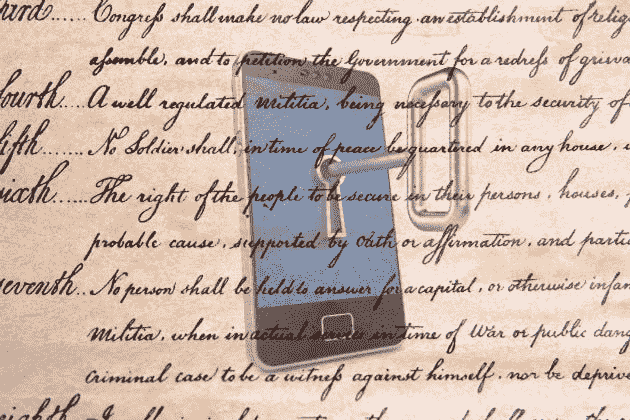 hird...... Congress shall make no law respecting an establishment of relig
assemble, and to petition the Government for a redress of grieva
fourth.... A well regulated Militia, being necessary to the security of
fifth....... No Soldier shall, in time of peace be quartered in any house,
sixth...... The right of the people to be secure in their persons, houses,
probable cause, supported by Oath or affirmation, and partic
seventh.. No person shall be held to answer for a capital, or otherwise infam
Militia, when in actual service in time of War or public dang
criminal case to be a witness against himself, nor be deprive
eighth